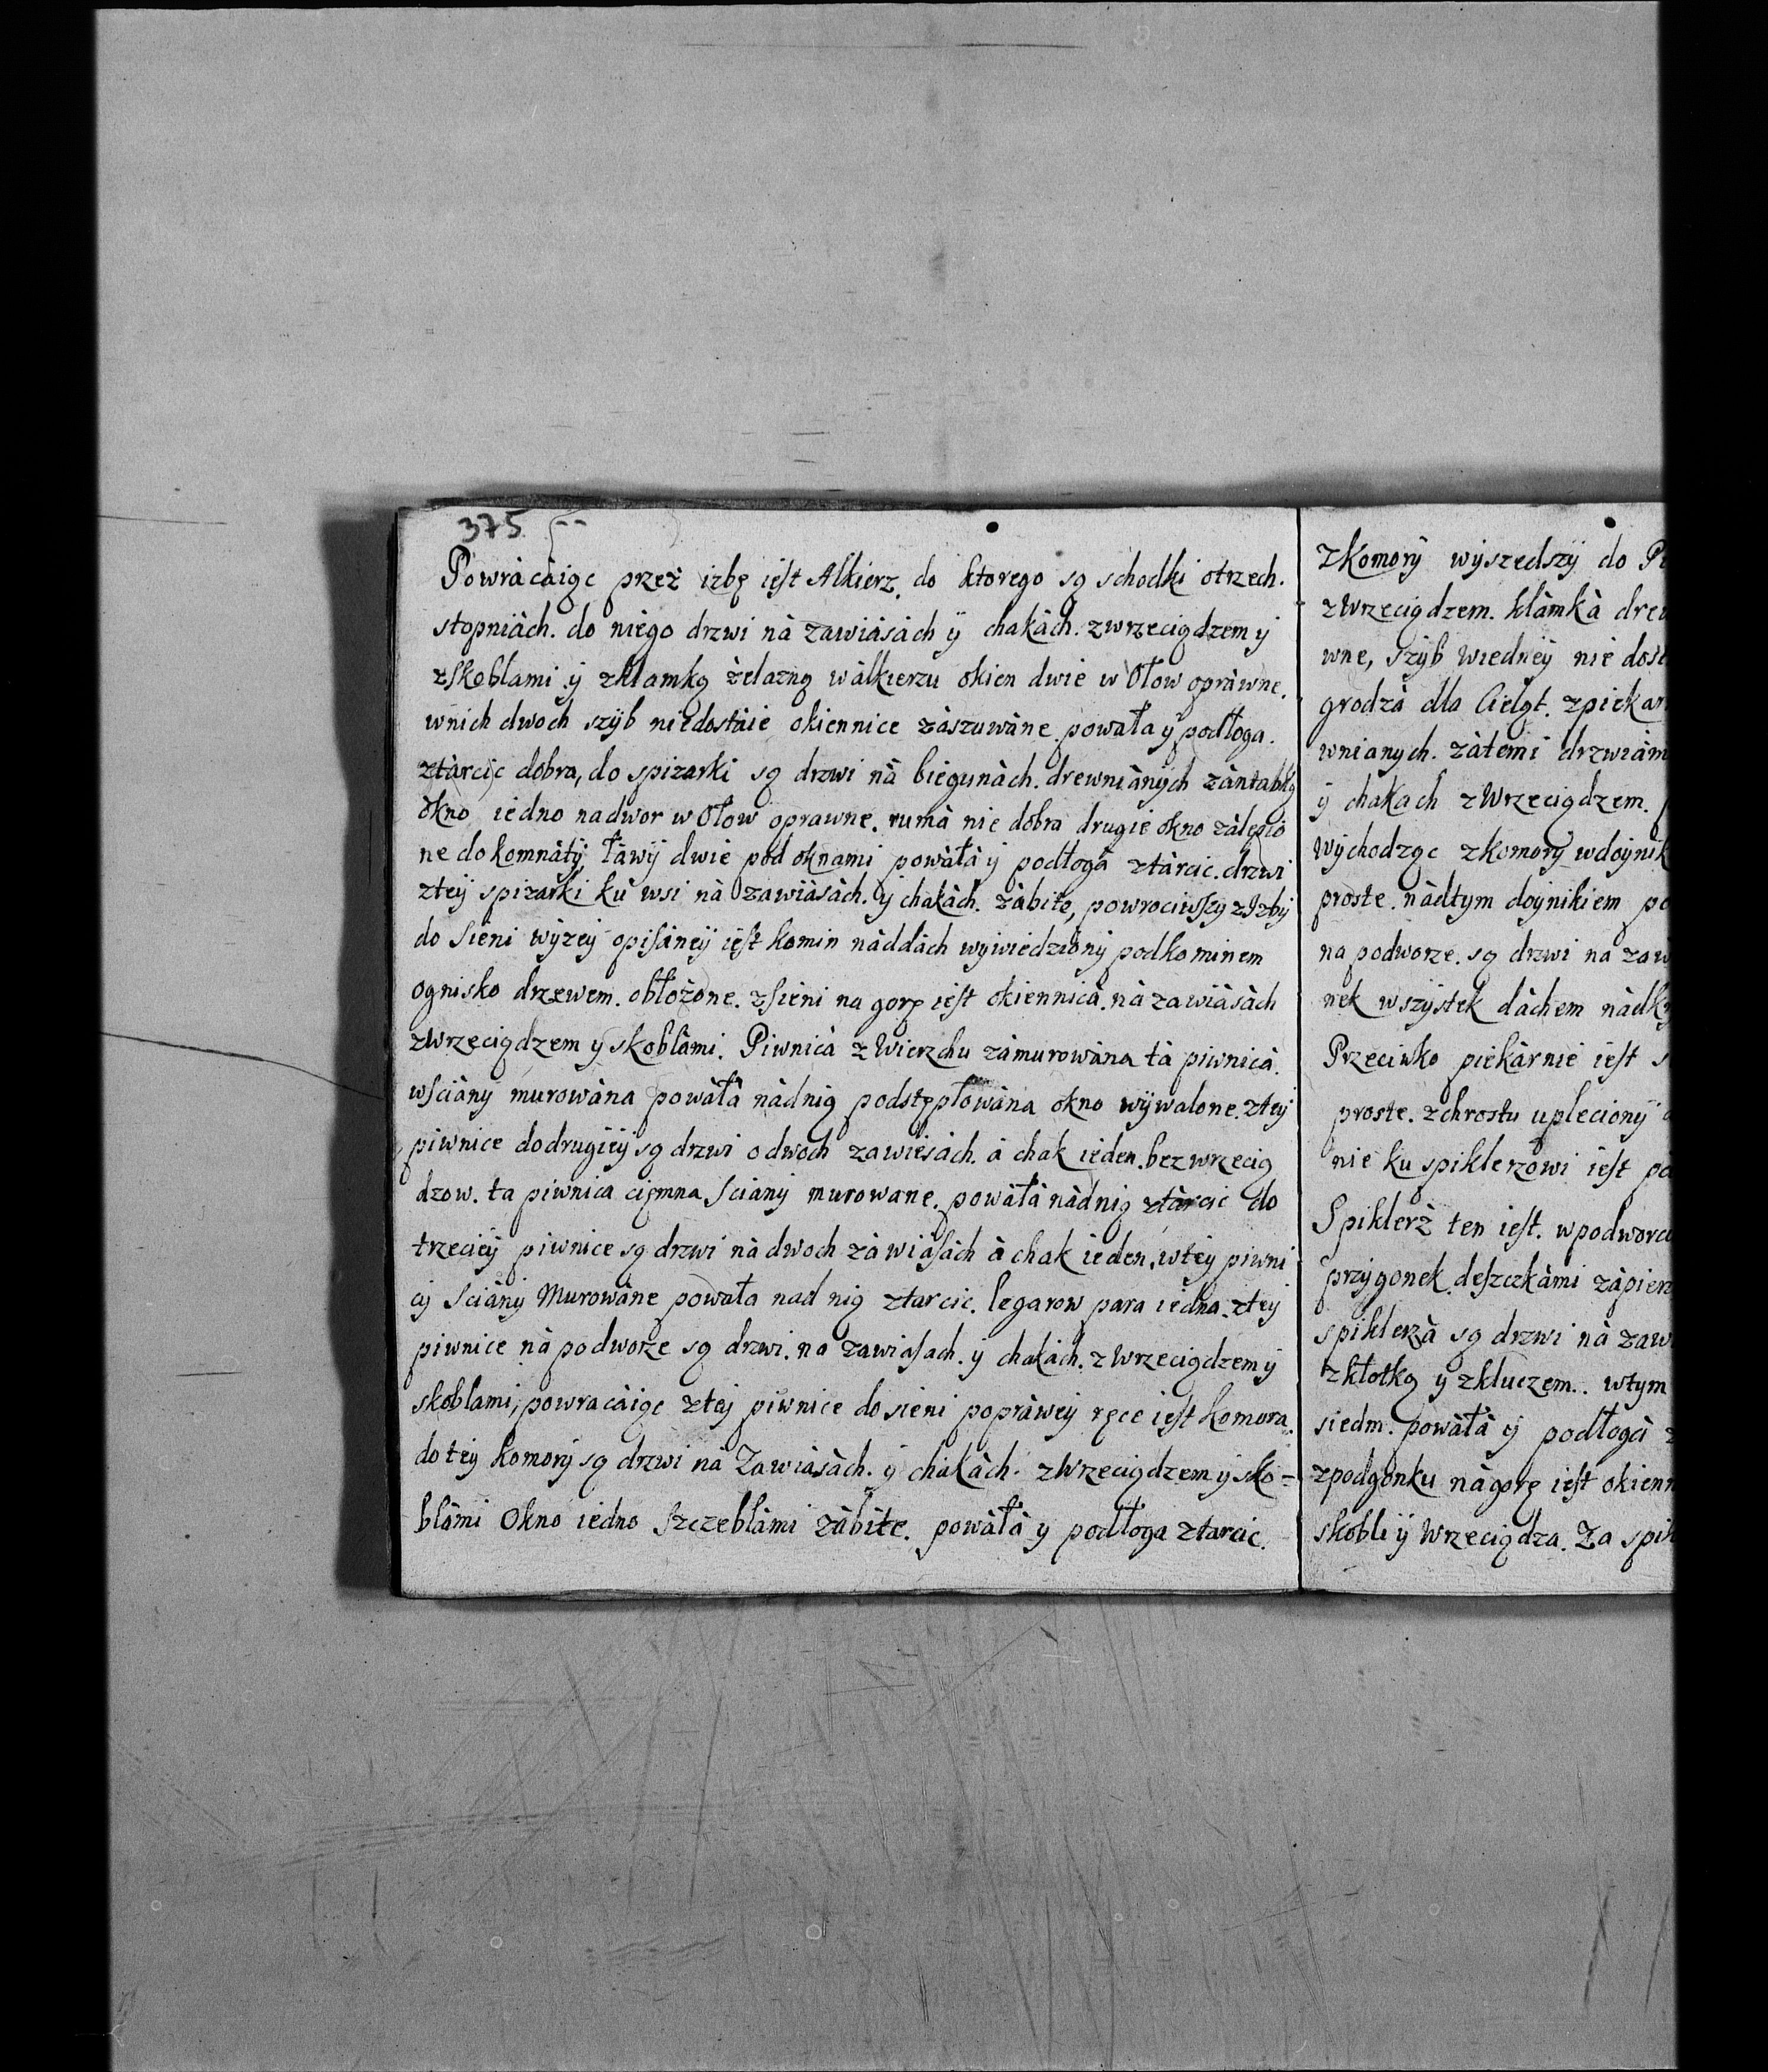 375
Powràcàiąc przez izbę iest Alkierz. do ktorego są schodki otrzech.
stopniàch. do niègo drzwi nà zawiàsàch ÿ chakàch. zwrzeciądzem y
zskoblami ÿ zklamką żelazną wàlkierzu okien dwie w Ołow opràwne.
wnich dwoch szÿb niedostàie okiennice zàszuwàne powała y podłoga.
ztàrcic dobra, do spizarki są drzwi nà biegunàch. drewniànÿch zàntabką
okno iedno nadwor w Ołow oprawne. rumà nie dobra drugie okno zàlepio
ne do komnàtÿ ławÿ dwie pod oknami powàłà ÿ podłogà ztàrcic. drzwi
zteÿ spizarki ku wsi nà zawiàsàch. ÿ chakàch. zàbite, powrociwszy zIzbÿ
do sieni wÿzeÿ opisàneÿ iest komin nàddàch wywiedzionÿ podkominem
ognisko drzewem. obłożone. zsieni na gorę iest okiennicà. nà zawiàsàch
zwrzeciądzem y skoblàmi. Piwnicà z Wierzchu zàmurowàna tà piwnicà.
wsciàny murowàna powàłà nàdnią podstęplowàna okno wÿwalone. zteÿ
piwnice dodrugiéÿ są drzwi o dwoch zawiesàch. à chak ieden. bez wrzecią
dzow. ta piwnica ciemna sciany murowane. powàłà nàdnią ztàrcic do
trzecieÿ piwnice są drzwi nà dwoch zàwiàsàch à chak ieden. wteÿ piwni
cÿ sciànÿ Murowàne powała nad nią ztarcic. legarow para iedna. ztey
piwnice nà podworze są drzwi. na zawiasach. y chakàch. zwrzeciądzem ÿ
skoblami, powracàiąc zteÿ piwnice do sieni popràwey ręce iest komora.
do tey komorÿ są drzwi nà Zawiàsàch. ÿ chakàch. zwrzeciądzem y sko-
blàmi Okno iedno szczeblàmi zàbite. powàłà y podłoga ztarcic.
zKomorÿ wÿszedszÿ do
zwrzeciądzem. klàmkà
wne, szÿb wiedneÿ nie
grodzà dla Cieląt.
wnianych. zàtemi
ÿ chakach zwrzeciądzem.
Wÿchodząc zKomorÿ
proste. nàdtym doÿnikiem
na podworze. są drzwi na
nek wszÿstek dàchem
Przeciwko piekàrnie iest
proste. zchrostu uplecionÿ
nie ku spiklerzowi iest
Spiklerz ten iest.
przÿgonek. deszczkàmi
spiklerzà są drzwi nà
zkłotką y zkluczem.. wtym
siedm. powàłà ÿ podłogà
zpodgonku nàgorę iest
skobli ÿ Wrzeciądza. Za